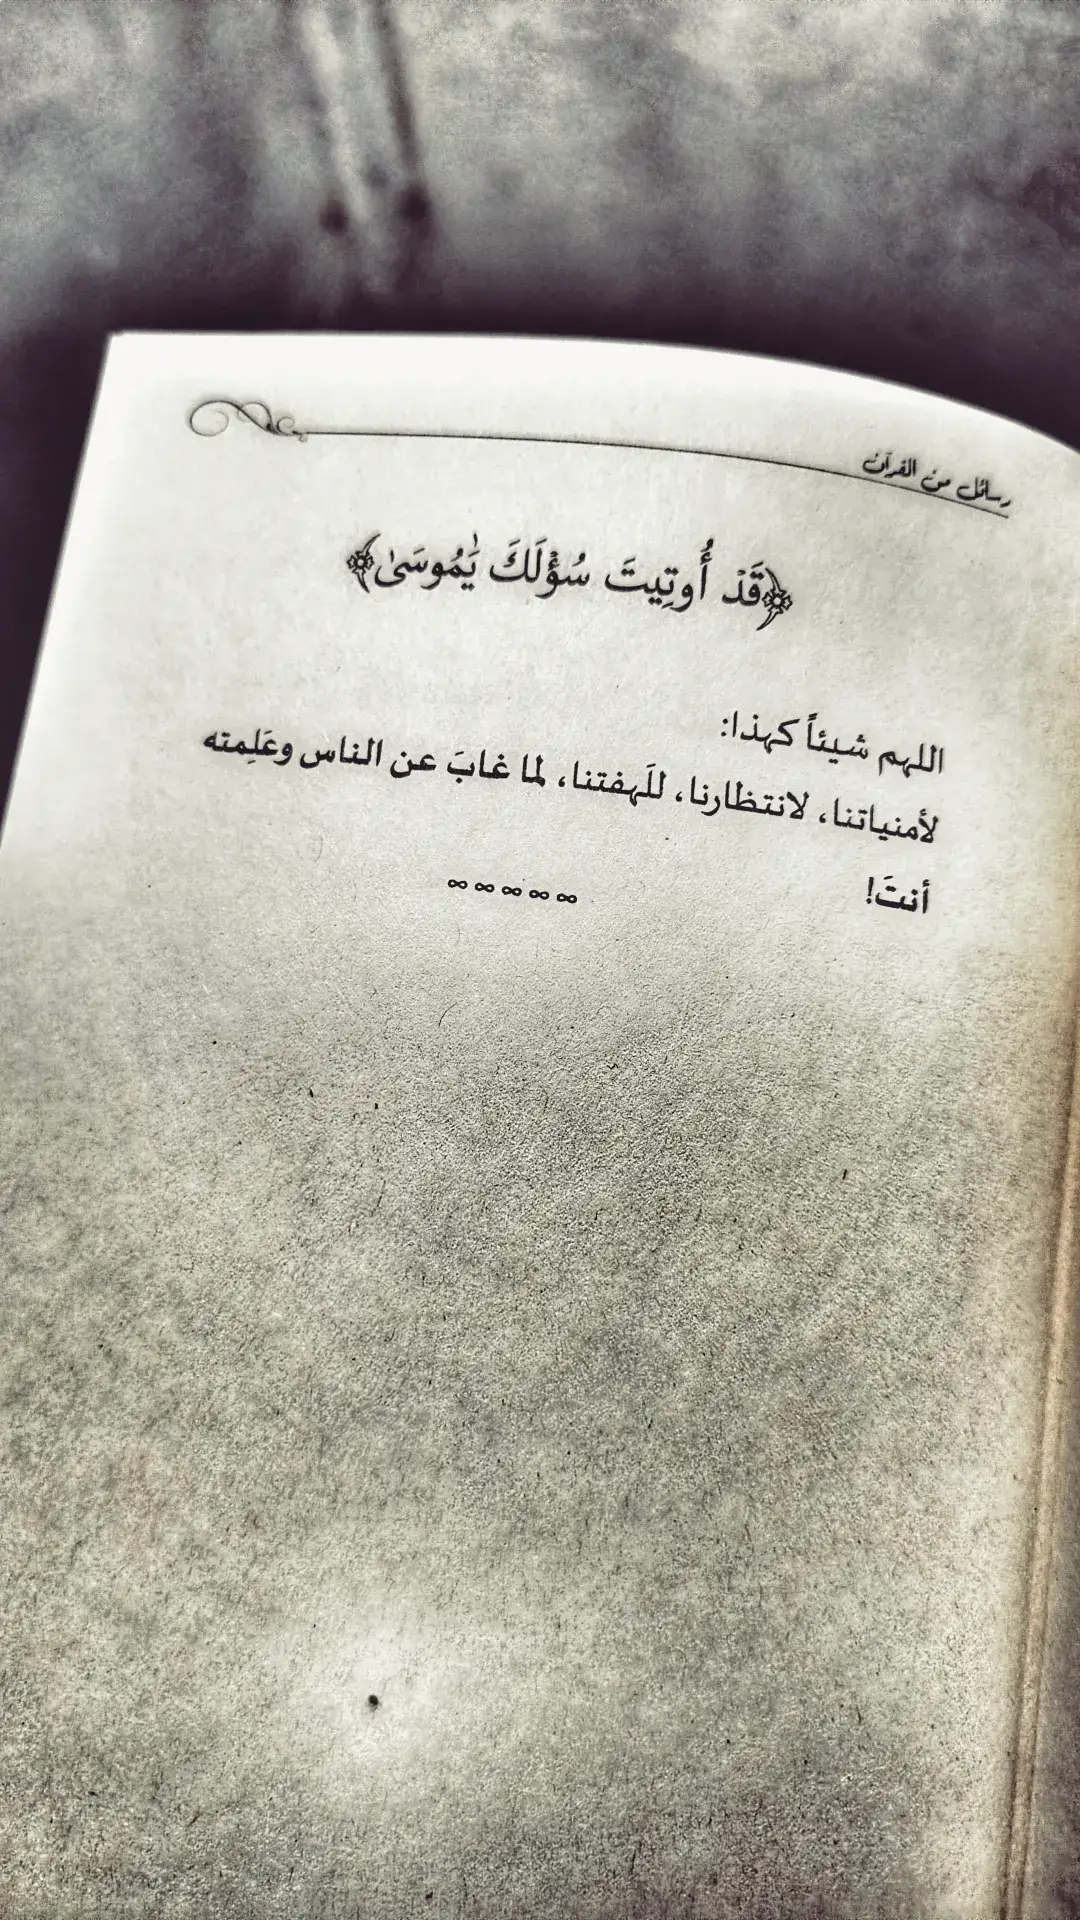 رسائل من القرآن
﴿قَدْ أُوتِيتَ سُؤْلَكَ يَٰمُوسَىٰ﴾
اللهم شيئاً كهذا:
لأمنياتنا، لانتظارنا، للَهفتنا، لما غابَ عن الناس وعَلِمته
أنتَ!
∞ ∞ ∞ ∞ ∞